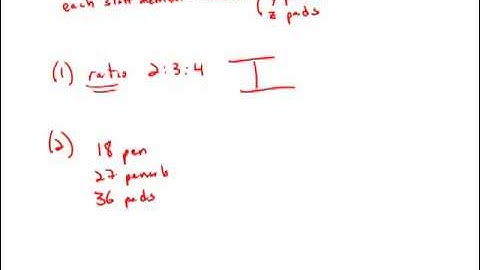 each staff member
z pads
(1) ratio 2:3:4 I
(2) 18 pen
27 pencils
36 pads